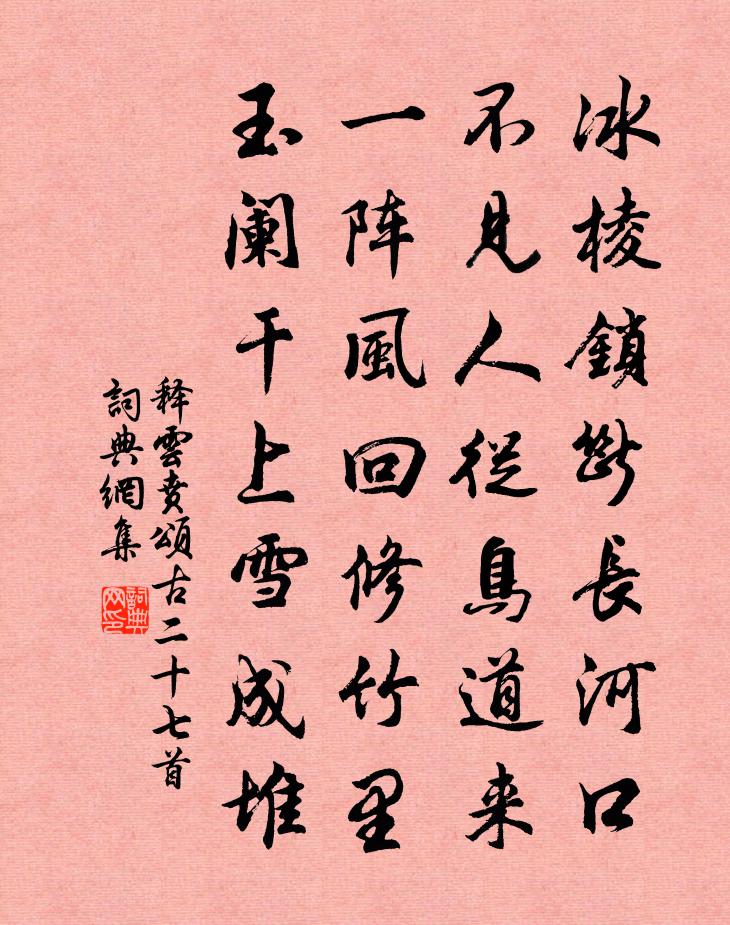 冰棱鎖斷長河口
不見人從鳥道来
一阵風回修竹里
玉阑干上雪成堆
释雲賁頌古二十七首
詞典網集
詞典网印